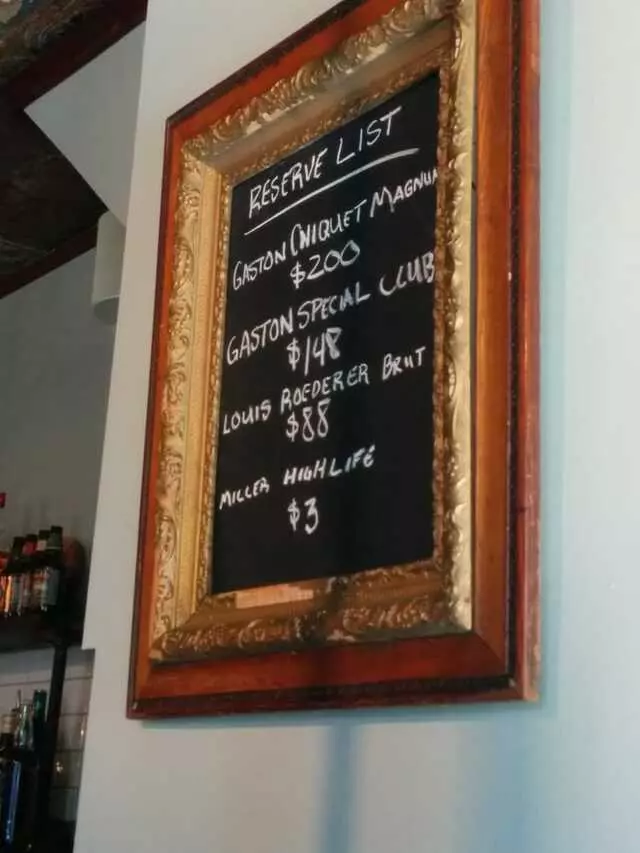 RESERVE LIST
GASTON CHIQUET MAGNUM
$200
GASTON SPECIAL CLUB
$148
LOUIS ROEDERER BRUT
$88
MILLER HIGH LIFE
$3